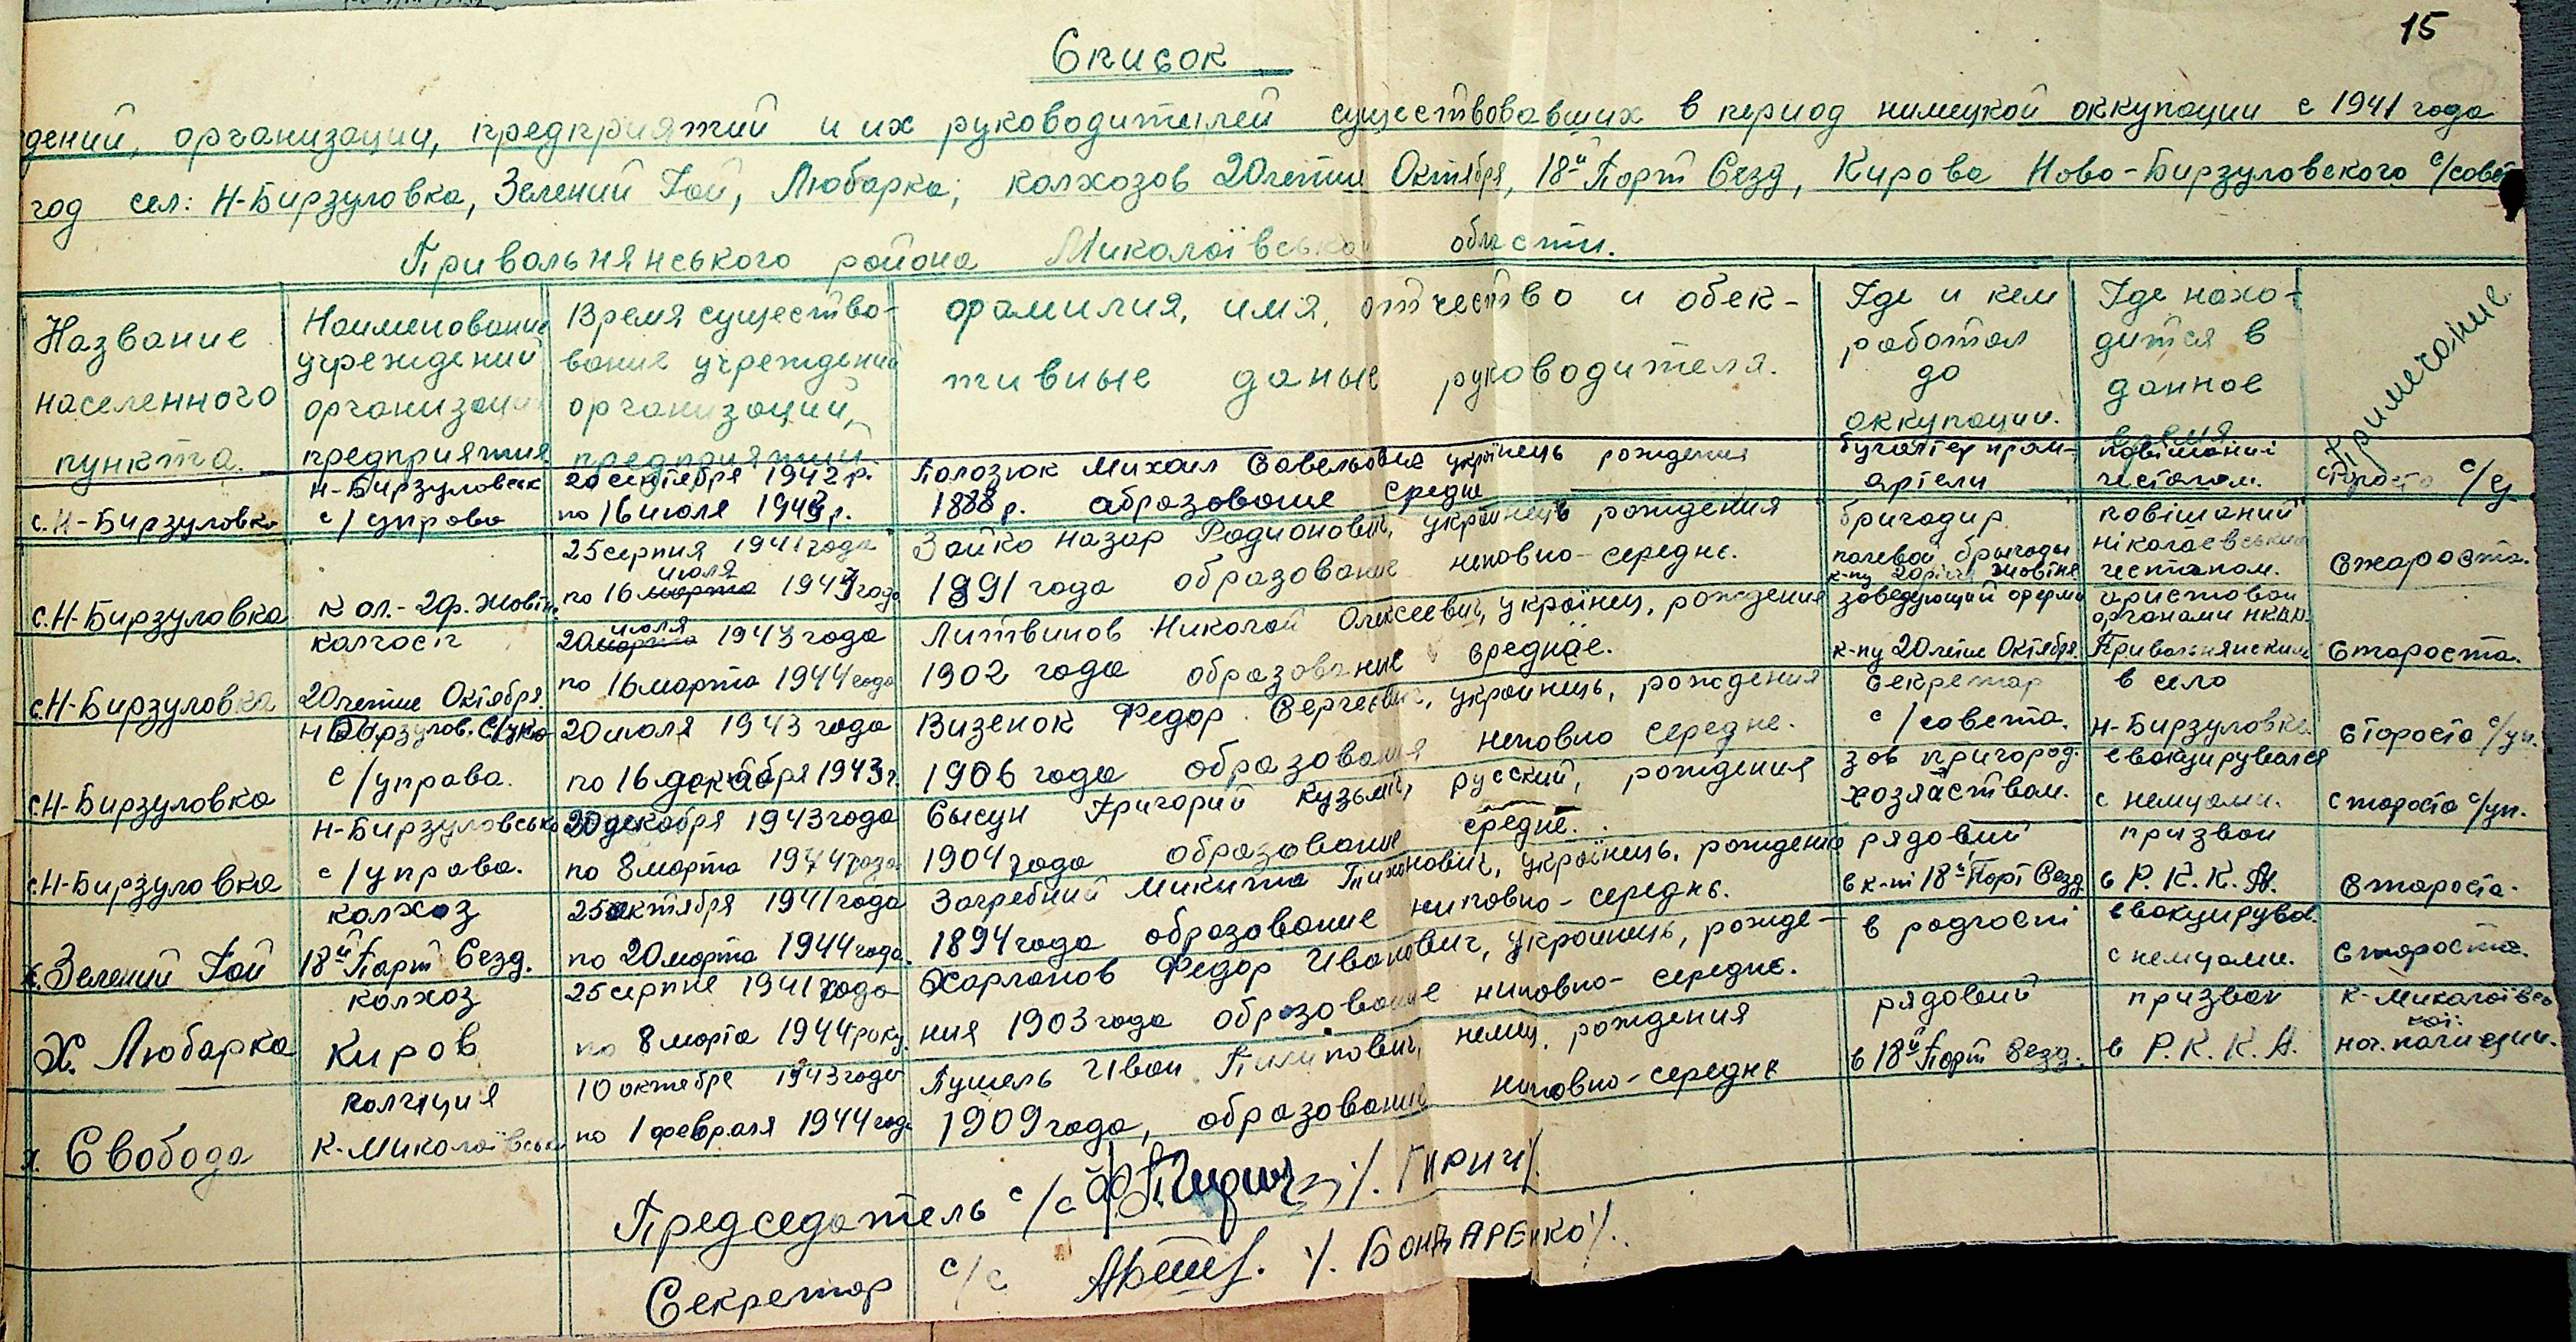 15
Список
дений, организации, предприятий и их руководителей существовавших в период нимецкой оккупации с 1941 года
год сел: Н-Бирзуловка, Зелений Гай, Любарка; колхозов 20летия Октября, 18й Парт Сезд, Кирова Ново-Бирзуловского с/совет
Привольнянського района Миколаївськой области.
Название населенного пункта.
Наименование учреждений организации предприятия
Время существо-
вание учреждений
организаций,
предприятий
фамилия, имя, отчество и обек-
тивные даные руководителя.
Где и кем
работал
до
оккупации.
Где нахо-
дится в
данное
время
Примечание
с. Н-Бирзуловка
Н-Бирзуловск
с/управа
20 сентября 1942 р.
по 16 июля 1943 р.
Полозюк Михаил Савельович українець рождения
1888 р. абразование средне
бугалтер пром-
артели
повішаний
гестапом.
Староста с/у
с.Н-Бирзуловка
Кол.-20р. Жовтня
25 серпня 1941 года
по 16 июля марта 1943 года
Зайко Назар Родионович, украінець рождения
1891 года образование неповно-середнє.
бригадир
палевой бригоды
к-пу 20річчя Жовтня
повішаний
ніколаєвським
гестапом.
Староста.
с.Н-Бирзуловка
колгосп
20летие Октября.
20 июля марта 1943 года
по 16 марта 1944 года
Литвинов Николай Олексеевич, українец, рождения
1902 года образование среднее.
заведующий ферми
к-пу 20летие Октября.
аристован
органами НКВД
Привольнянским
Староста.
с.Н-Бирзуловка
Н Бирзулов. с/упра
с/управа.
20 июля 1943 года
по 16 декабря 1943 г.
Визенок Федор Сергеевич, украинець, рождения
1906 года образования неповно середне.
Секретар
с/совета.
в село
Н-Бирзуловке
Староста с/уп.
с.Н-Бирзуловка
Н-Бирзуловсько
с/управа.
20 декабря 1943 года
по 8 марта 1944 года
Сысун Григорий Кузьмич, русский, рождения
1904 года образование средне.
зав пригород.
хозяйством.
евакуирувался
с немцами.
Староста с/уп.
х. Зелений Гай
колхоз
18й Парт Сезд.
25 октября 1941 года
по 20 марта 1944 года.
Загребний Микита Тихонович, українець, рождение
1894 года образование неповно-середнє.
рядовий
в к-пі 18й Парт Сезд
призван
в Р.К.К.А.
Староста.
Х. Любарка
колхоз
Киров
25 серпне 1941 года
по 8 марта 1944 року.
Харланов Федор Иванович, украинець, рожде-
ния 1903 года образование неповно-середнє.
в радгоспі
евакуирувал.
с немцами.
Староста.
х. Свобода
полиция
К-Миколаївськ
10 октебре 1943 года
по 1 февраля 1944 года
Пушель Иван Пилипович, немец, рождения
1909 года, образование неповно-середнє
рядовий
в 18й Парт Сезд.
призван
в Р.К.К.А.
К-Миколаївсь
кой
нач. полиции.
Председатель с/с /. Пирич /.
Секретар с/с /. БОНДАРЕНКО /.